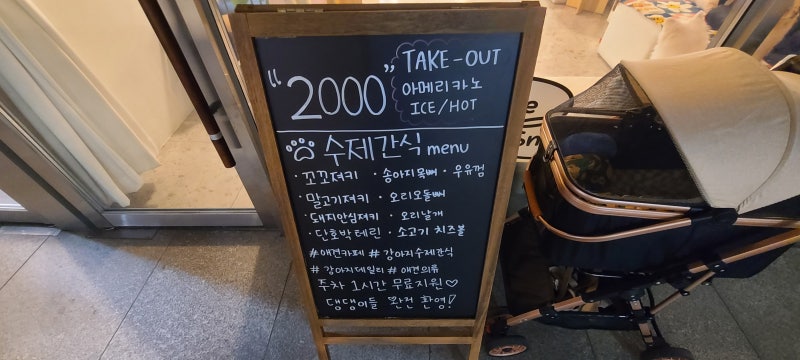 "2000" TAKE-OUT
아메리카노
ICE/HOT
수제간식 menu
· 꼬꼬져키 · 송아지목뼈 · 우유껌
· 말고기져키 · 오리오돌뼈
· 돼지안심져키 · 오리날개
· 단호박테린 · 소고기 치즈볼
#애견카페 #강아지수제간식
#강아지데일리 #애견의류
주차 1시간 무료지원♡
댕댕이들 완전 환영!